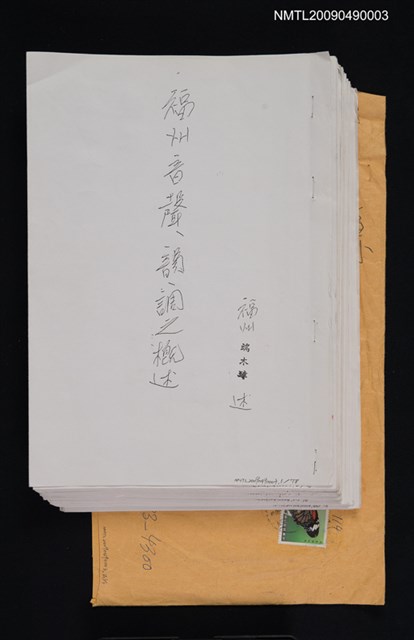 NMTL20090490003
福州音聲、韻、調之概述
福州 端木肇 述
3-4300